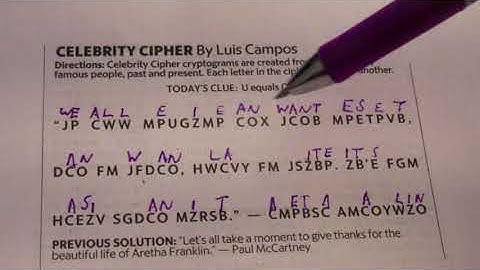 CELEBRITY CIPHER By Luis Campos
Directions: Celebrity Cipher cryptograms are created from
famous people, past and present. Each letter in the another.
TODAY'S CLUE: U equals
WE ALL E I E AN WANT ES E T
"JP CWW MPUGZMP COX JCOB MPETPVB,
AN W AN LA ITE IT S
DCO FM JFDCO, HWCVY FM JSZBP. ZB'E FGM
ASI AN I T A ETA A LIN
HCEZV SGDCO MZRSB." — CMPBSC AMCOYWZO
PREVIOUS SOLUTION: "Let's all take a moment to give thanks for the
beautiful life of Aretha Franklin." — Paul McCartney